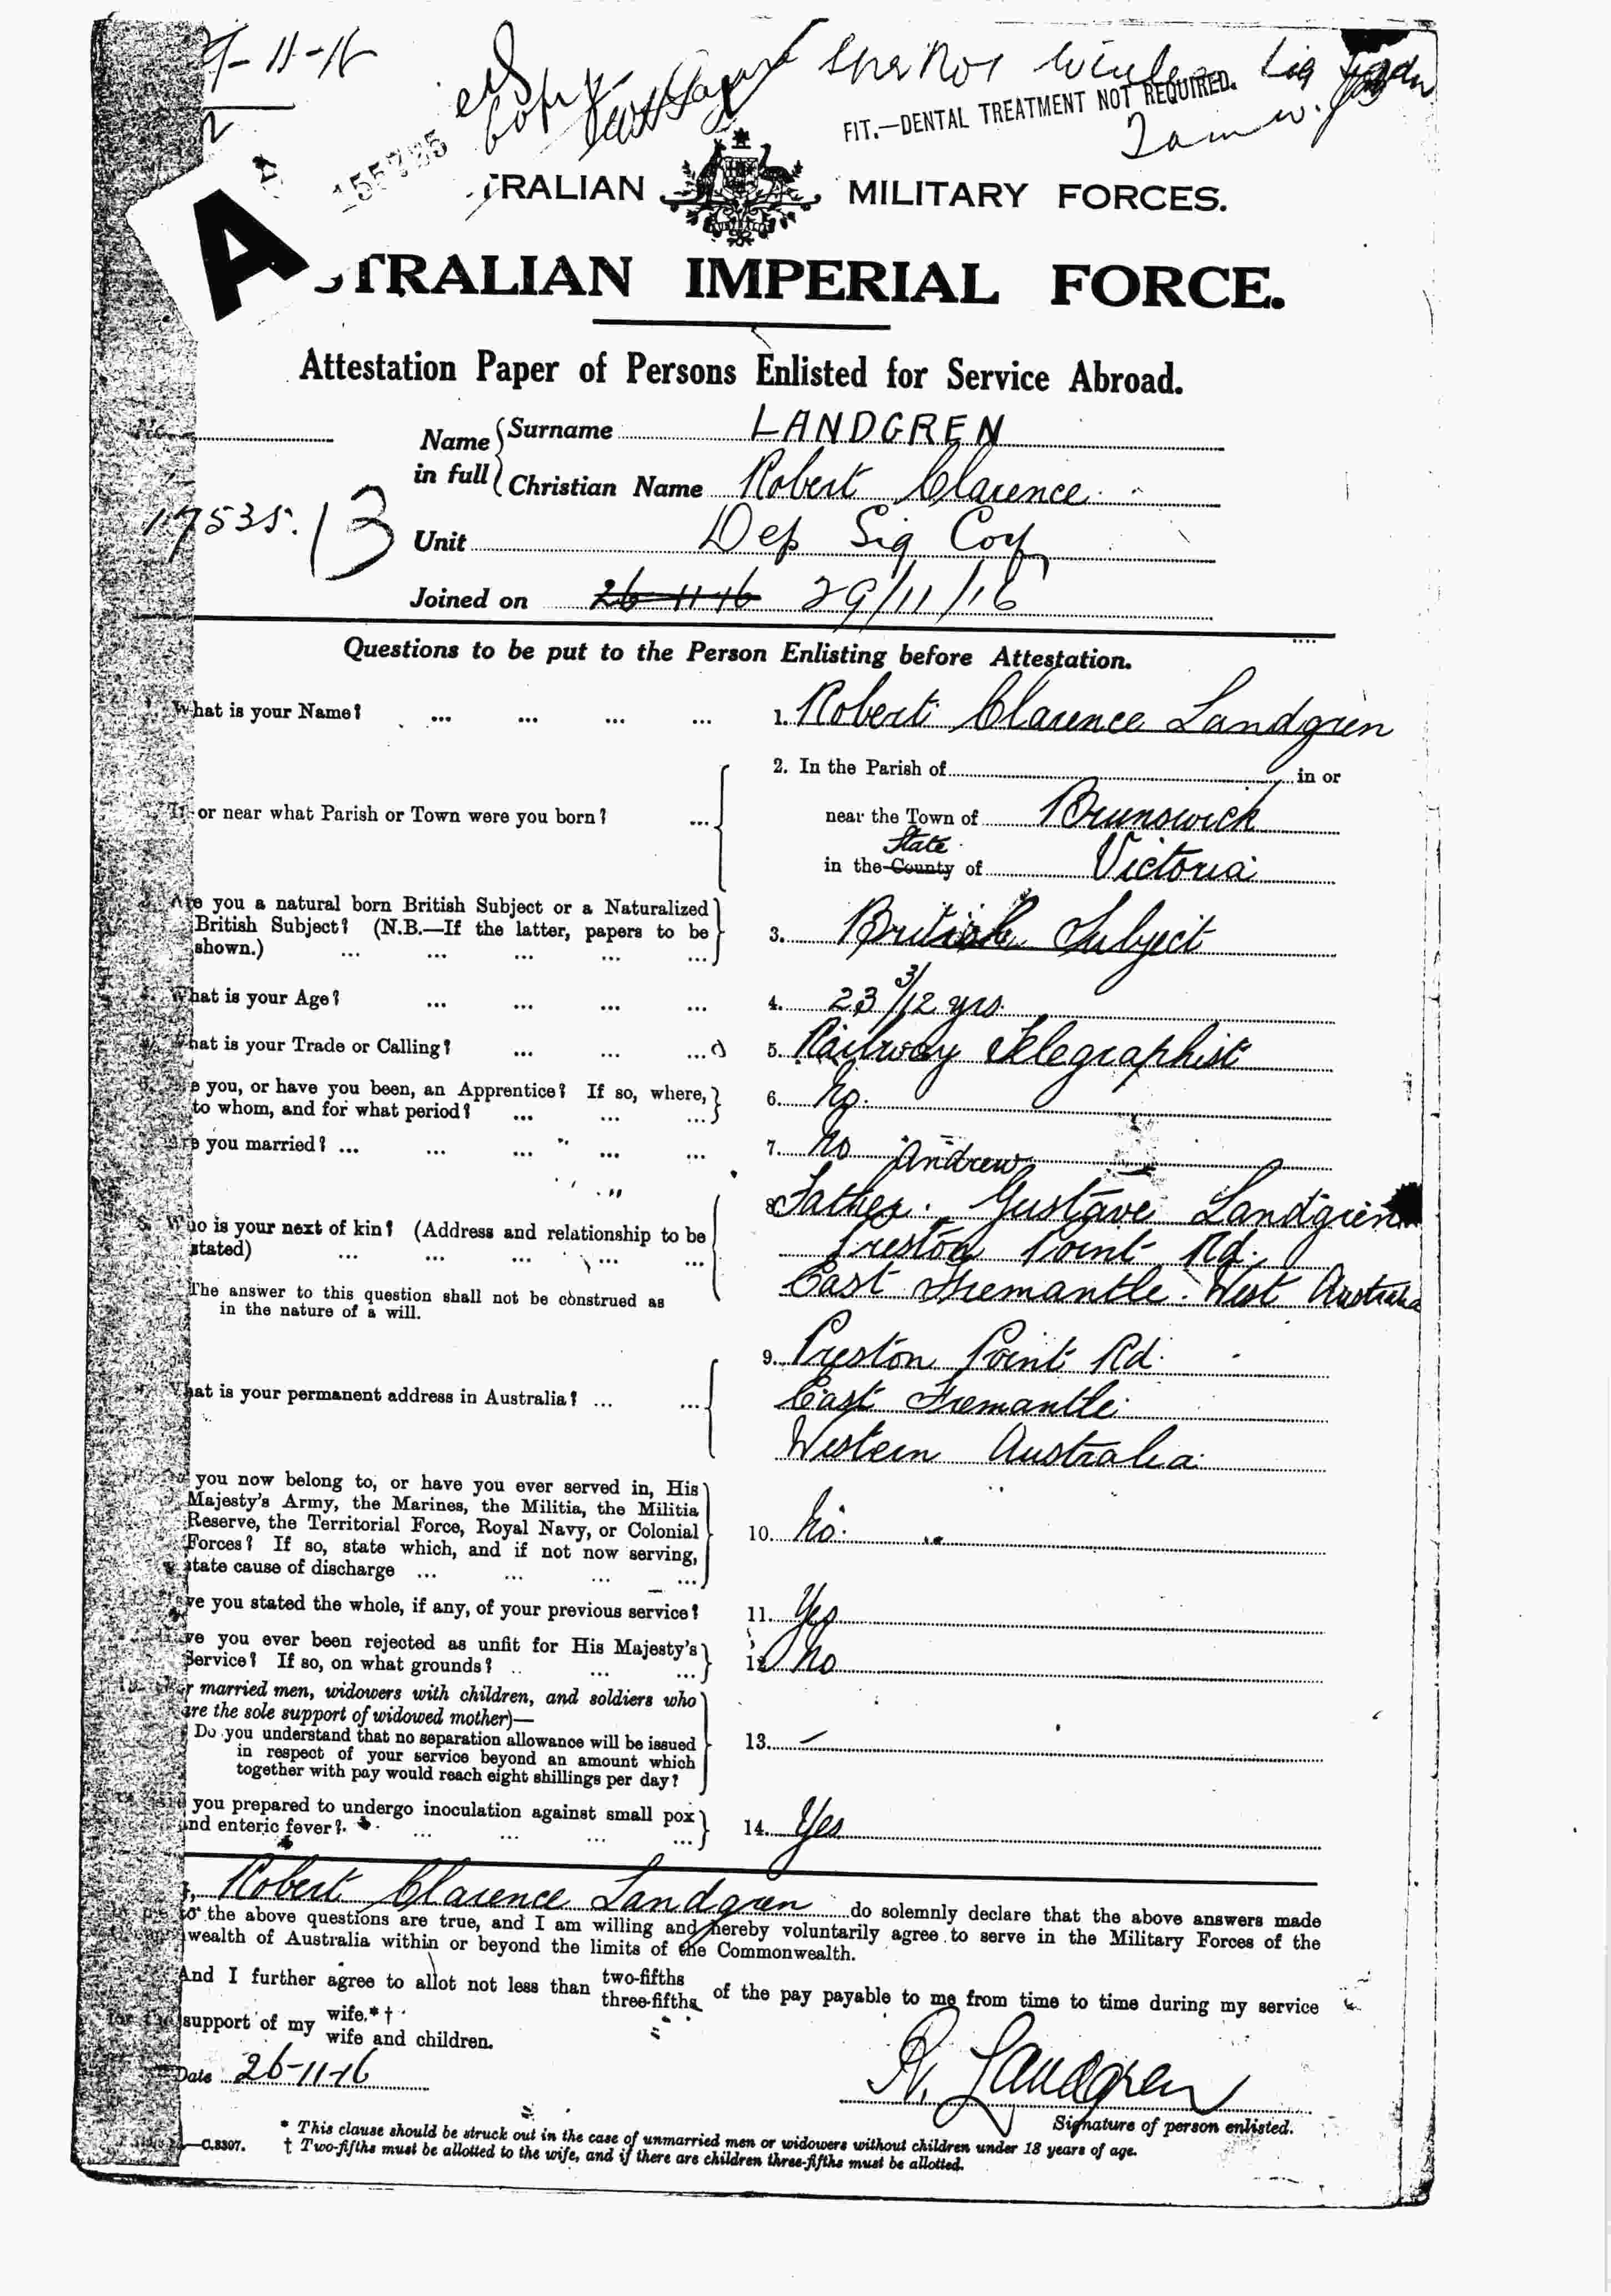 FIT.—DENTAL TREATMENT NOT REQUIRED.
A
TRALIAN MILITARY FORCES.
STRALIAN IMPERIAL FORCE.
Attestation Paper of Persons Enlisted for Service Abroad.
No.
Name in full { Surname LANDGREN
Christian Name Robert Clarence
17535. 13
Unit Dep Sig Coy
Joined on 26-11-16 29/11/16
Questions to be put to the Person Enlisting before Attestation.
What is your Name? ... ... ... ... 1. Robert Clarence Landgren
2. In the Parish of in or
or near what Parish or Town were you born? ... near the Town of Brunswick
State
in the County of Victoria
Are you a natural born British Subject or a Naturalized
British Subject? (N.B.—If the latter, papers to be 3. British Subject
shown.) ... ... ... ... ...
What is your Age? ... ... ... ... 4. 23 3/12 yrs
What is your Trade or Calling? ... ... ... 5. Railway Telegraphist
e you, or have you been, an Apprentice? If so, where, 6. No.
to whom, and for what period? ... ... ...
e you married? ... ... ... ... ... 7. No
Andrew
8. Father. Gustave Landgren
Who is your next of kin? (Address and relationship to be
stated) ... ... ... ... ... Preston Point Rd.
The answer to this question shall not be construed as East Fremantle. West Australia
in the nature of a will.
9. Preston Point Rd.
What is your permanent address in Australia? ... ... East Fremantle
Western Australia.
you now belong to, or have you ever served in, His
Majesty's Army, the Marines, the Militia, the Militia
Reserve, the Territorial Force, Royal Navy, or Colonial 10. No.
Forces? If so, state which, and if not now serving,
state cause of discharge ... ... ... ...
ve you stated the whole, if any, of your previous service? 11. Yes
ve you ever been rejected as unfit for His Majesty's 12. No
Service? If so, on what grounds? .. ... ...
r married men, widowers with children, and soldiers who
are the sole support of widowed mother)—
Do you understand that no separation allowance will be issued 13. —
in respect of your service beyond an amount which
together with pay would reach eight shillings per day?
you prepared to undergo inoculation against small pox 14. Yes
and enteric fever? ... ... ... ...
I, Robert Clarence Landgren do solemnly declare that the above answers made
to the above questions are true, and I am willing and hereby voluntarily agree to serve in the Military Forces of the
wealth of Australia within or beyond the limits of the Commonwealth.
And I further agree to allot not less than two-fifths three-fifths of the pay payable to me from time to time during my service
for the support of my wife.*†
wife and children.
Date 26-11-16 R. Landgren
Signature of person enlisted.
* This clause should be struck out in the case of unmarried men or widowers without children under 18 years of age.
—C.8307. † Two-fifths must be allotted to the wife, and if there are children three-fifths must be allotted.